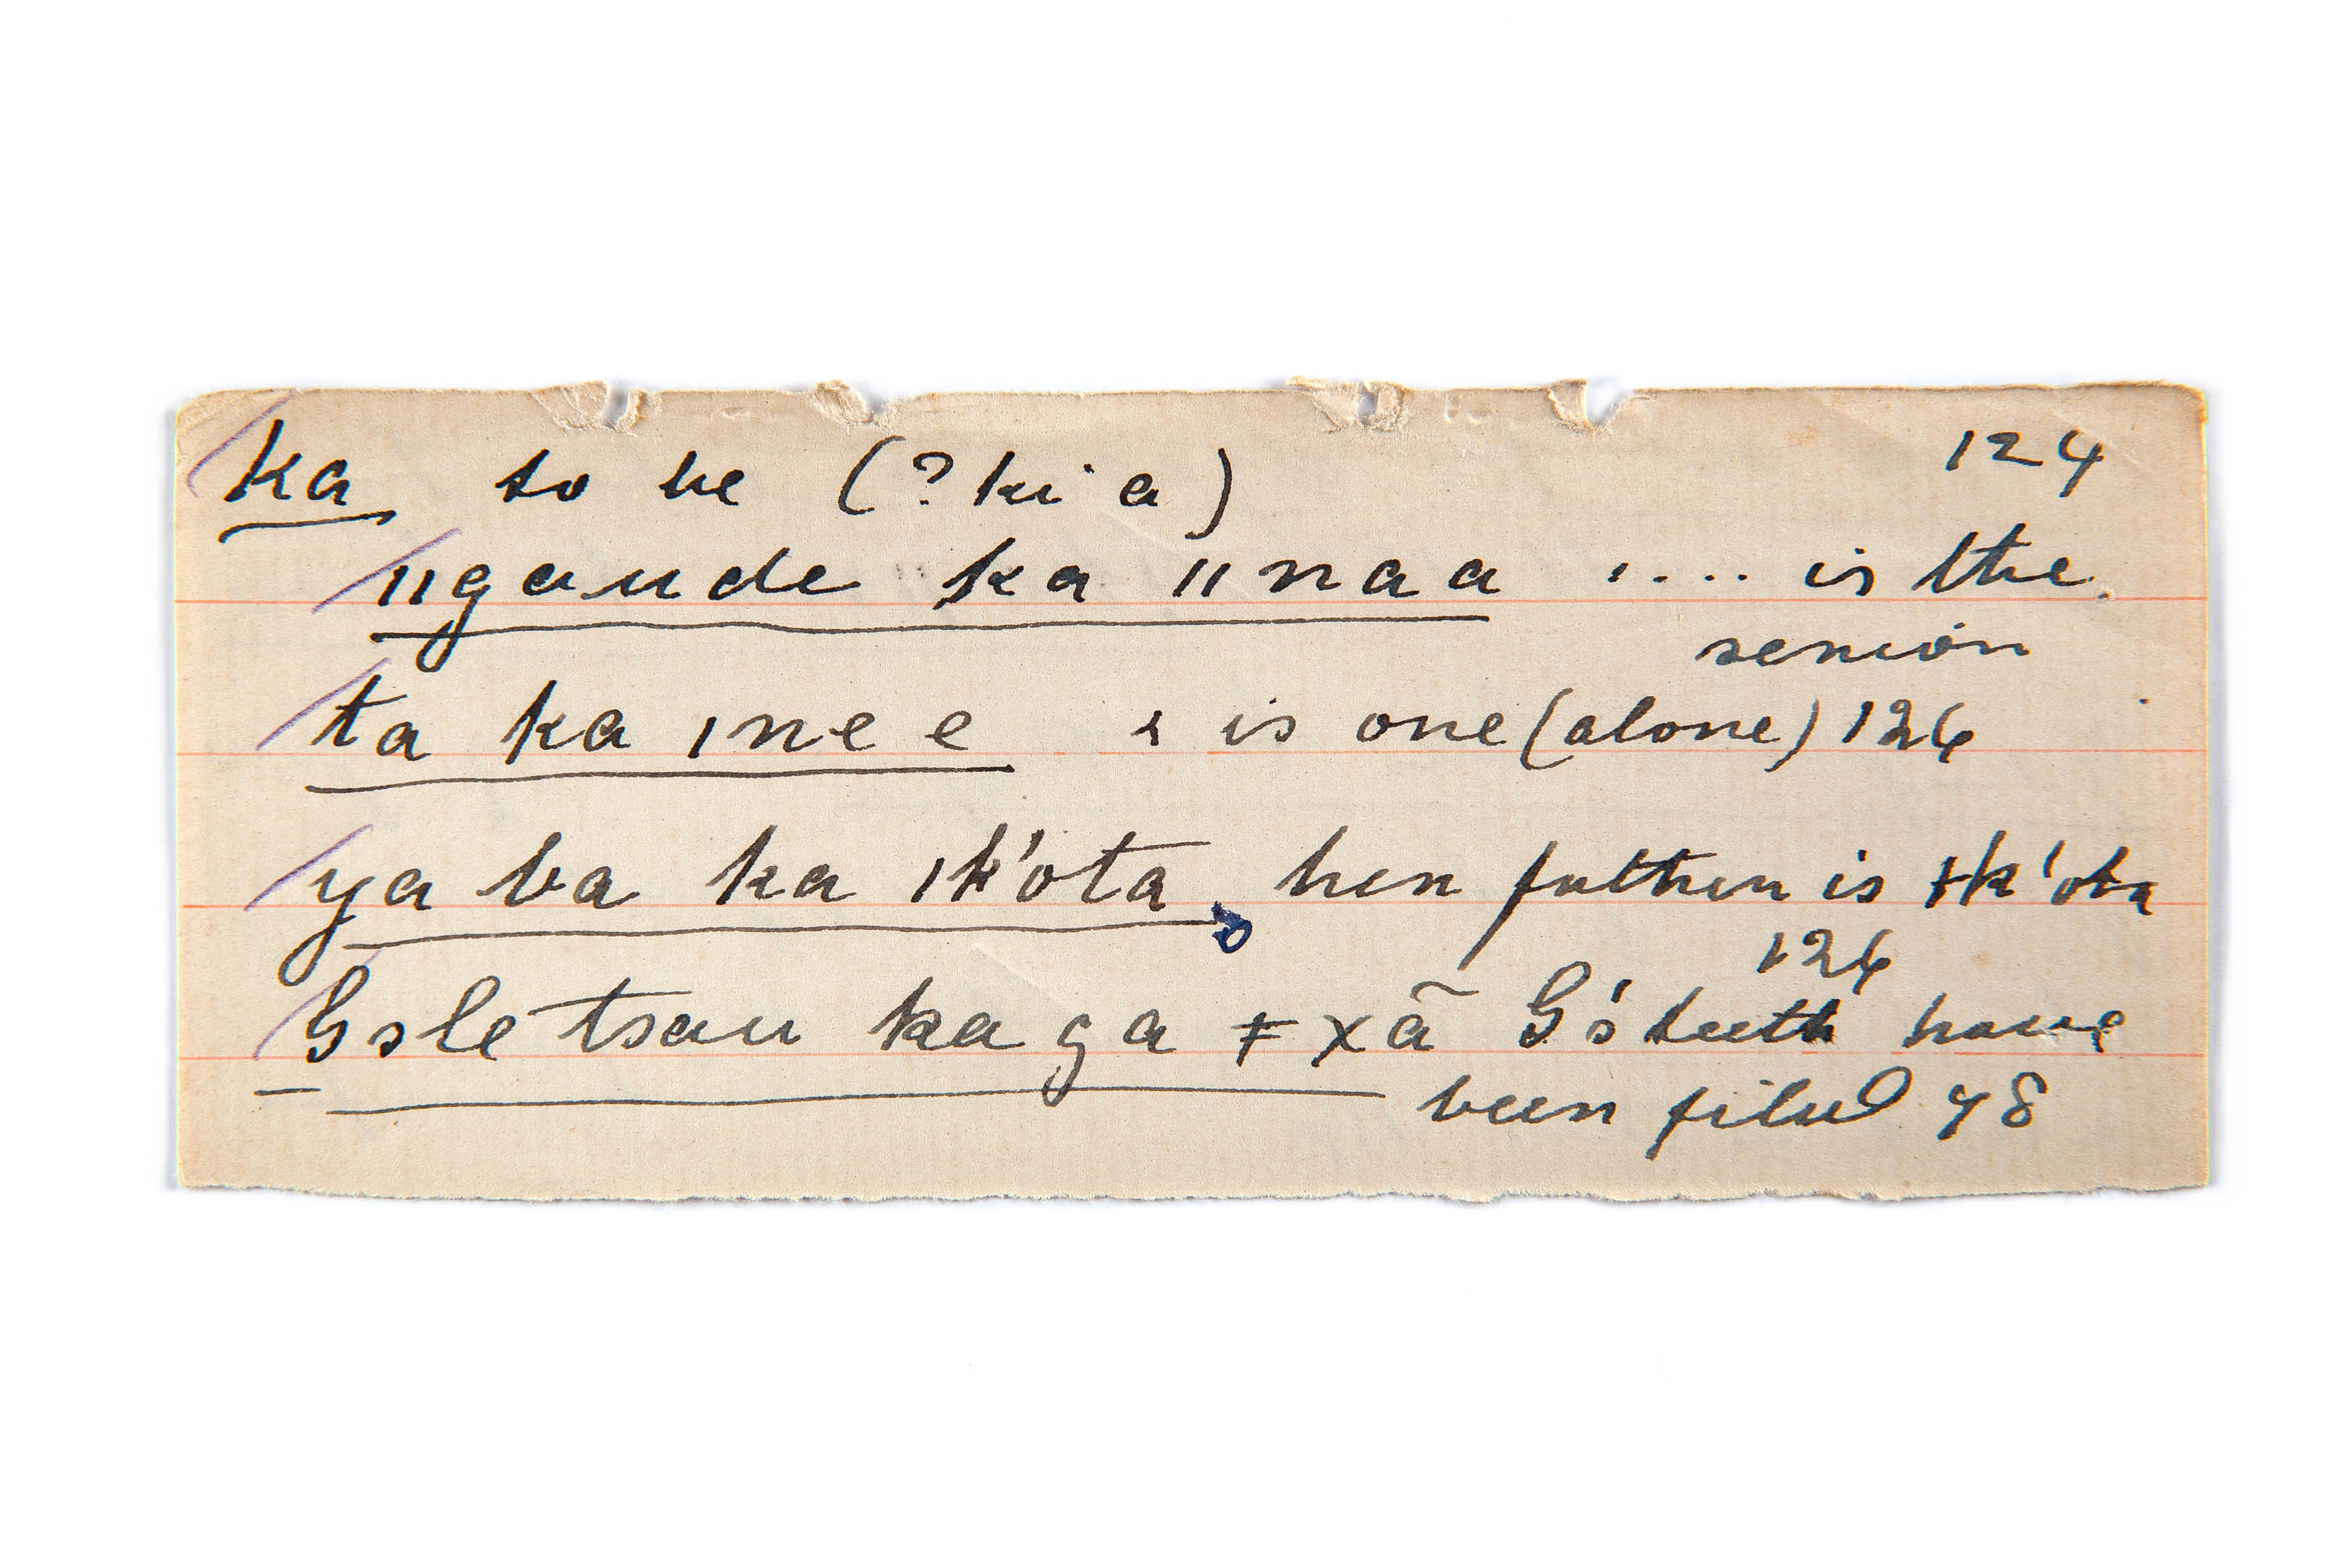 ka to be (? ki a) 124
ǁgaude ka ǁnaa .... is the
senior
ta ka ǀnee is one (alone) 126
ya ba ka ǀk'ota her father is ǂk'ota
126
Gsle tsau ka ga ǂxã G's teeth have
been filed 48